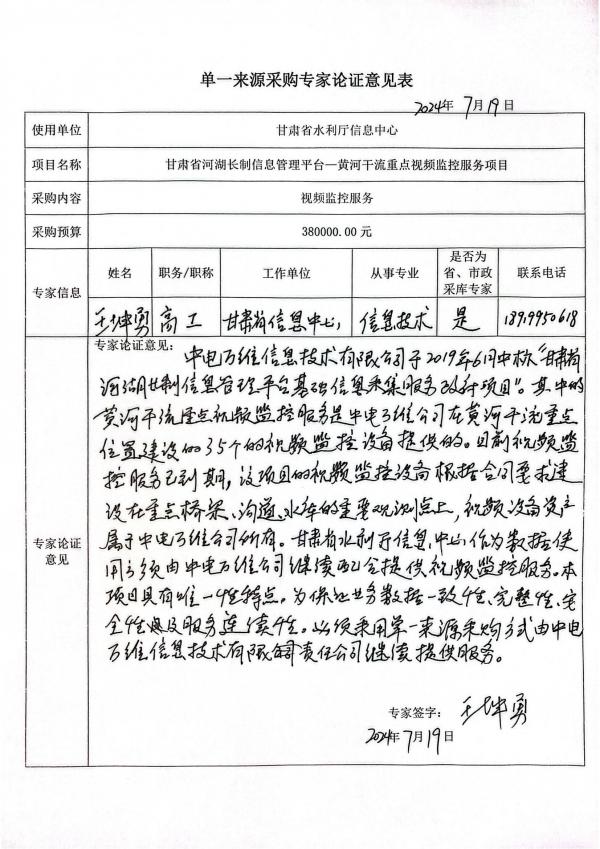 单一来源采购专家论证意见表
2024年 7月19日
使用单位 甘肃省水利厅信息中心
项目名称 甘肃省河湖长制信息管理平台—黄河干流重点视频监控服务项目
采购内容 视频监控服务
采购预算 380000.00 元
专家信息 姓名 职务/职称 工作单位 从事专业 是否为省、市政采库专家 联系电话
王坤勇 高工 甘肃省信息中心 信息技术 是
专家论证意见
专家论证意见:
中电万维信息技术有限公司于2019年6月中标“甘肃省
河湖长制信息管理平台基础信息采集服务项目”。其中的
黄河干流重点视频监控服务是中电万维公司在黄河干流重点
位置建设的35个的视频监控设备提供的。目前视频监
控服务已到期,该项目的视频监控设备根据合同要求建
设在重点桥梁、沟道、水库的重要观测点上,视频设备资产
属于中电万维公司所有。甘肃省水利厅信息中心作为数据使
用方须由中电万维公司继续配合提供视频监控服务。本
项目具有唯一性特点。为保证业务数据一致性、完整性、安
全性以及服务连续性。必须采用单一来源采购方式由中电
万维信息技术有限责任公司继续提供服务。
专家签字: 王坤勇
2024年7月19日